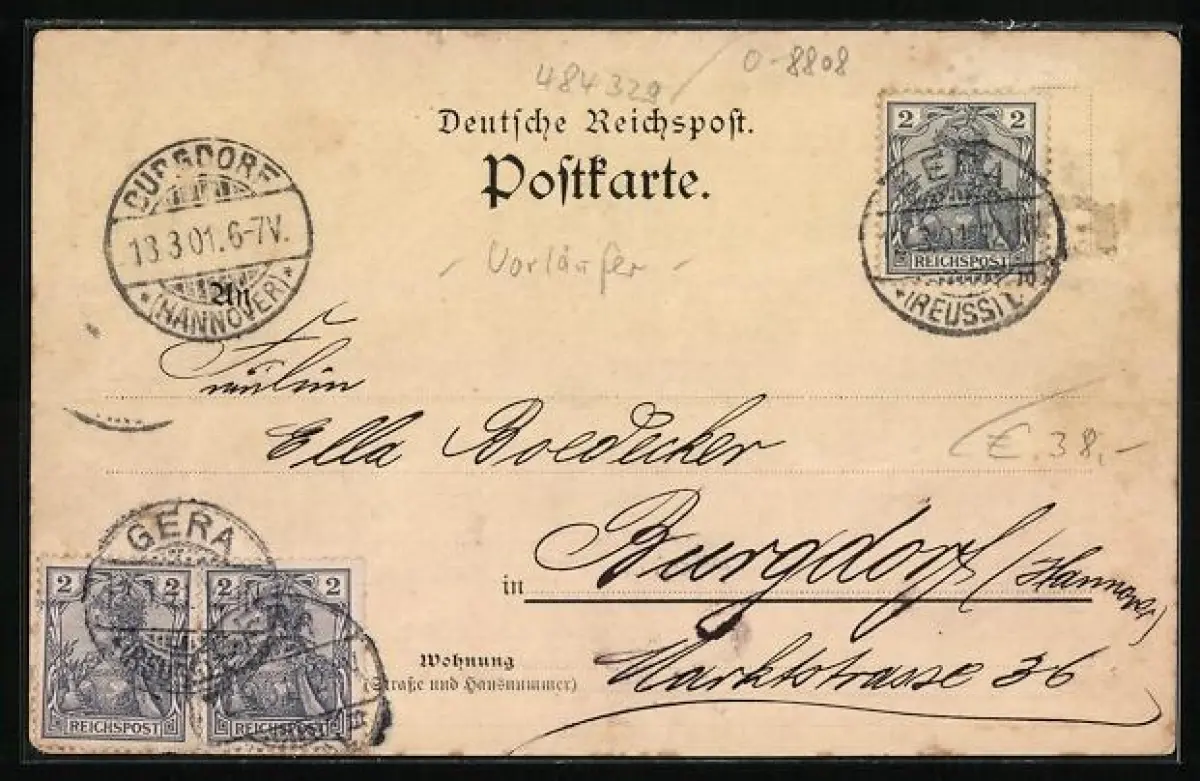 484329 / 0-8808
Deutsche Reichspost.
Postkarte.
2 2
GERA
(REUSS) 1.
REICHSPOST
BURGDORF
13.3.01.6-7V.
*(HANNOVER)*
- Vorläufer -
An
Fräulein
Ella Boedecker
€ 38,-
in Burgdorf (Hannover)
Wohnung
(Straße und Hausnummer)
Marktstrasse 36
GERA
2 2
2 2
REICHSPOST
REICHSPOST